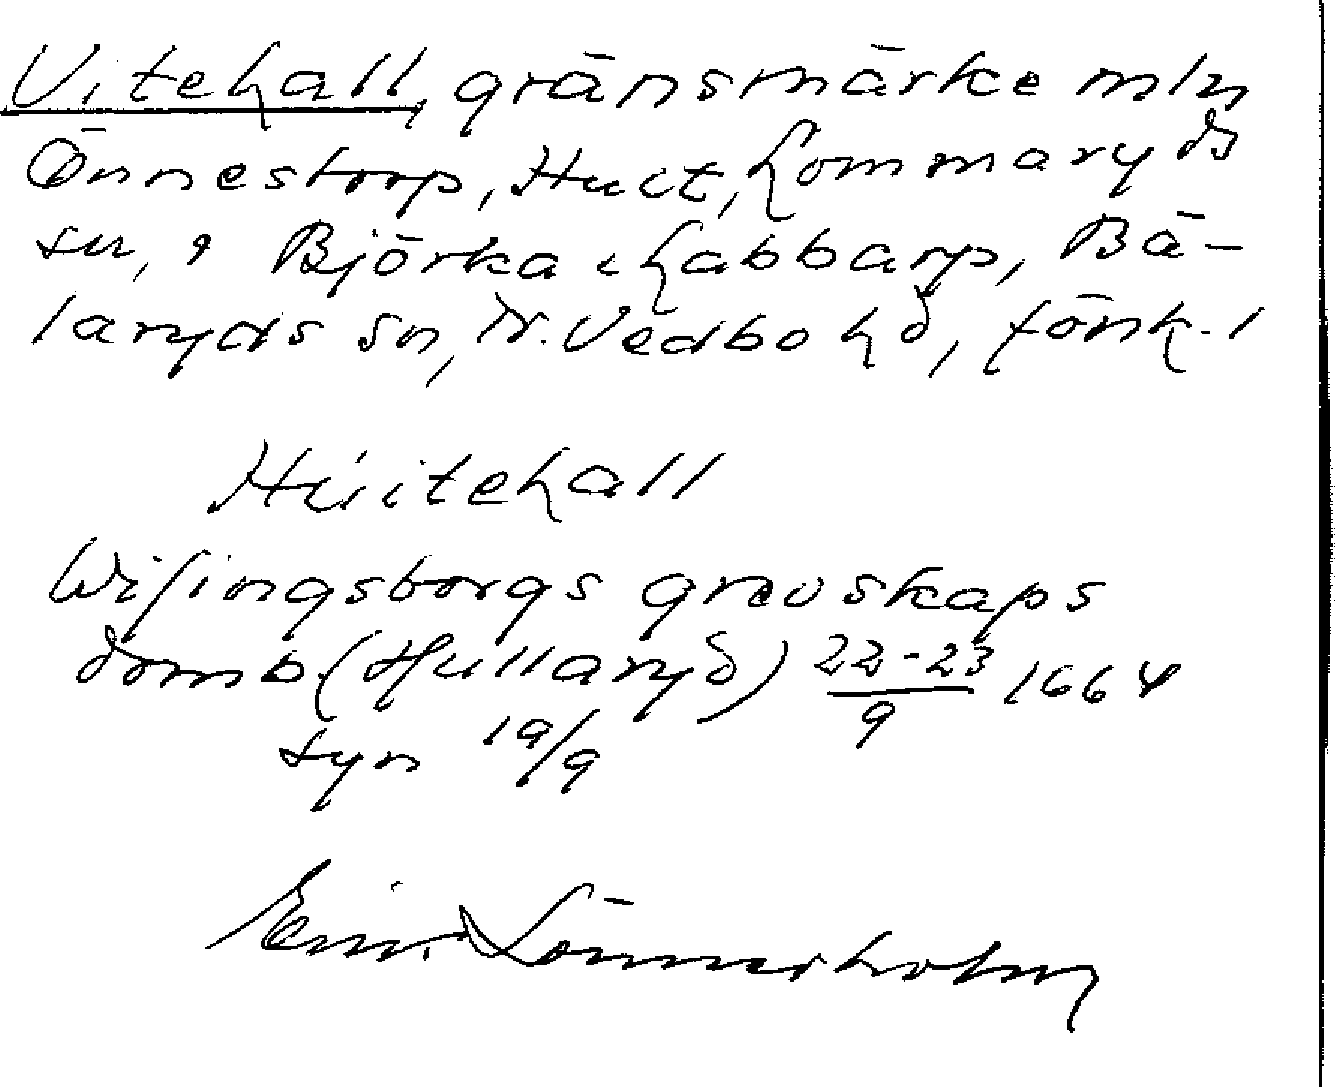 Vitehall, gränsmärke mln
Önnestorp, Hult, Lommaryds
sn, o Björka i Labbarp, Bä-
laryds sn, N. Vedbo hd, Jönk. l
Huitehall
Wisingsborgs grevskaps
domb. (Hullaryd) 22-23/9 1664
syn 19/9
Ein. Sönnerholm